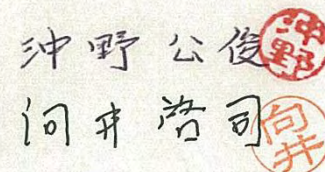 沖野公俊 沖野
向井啓司 向井